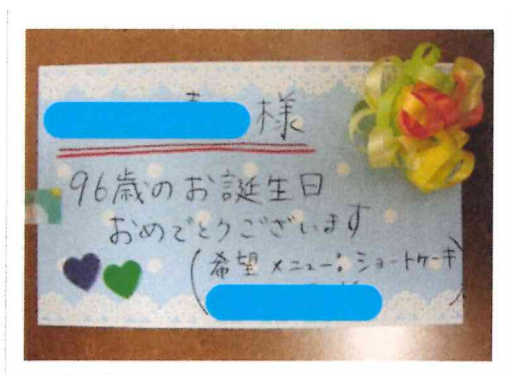 様
96歳のお誕生日
おめでとうございます
(希望メニュー:ショートケーキ)